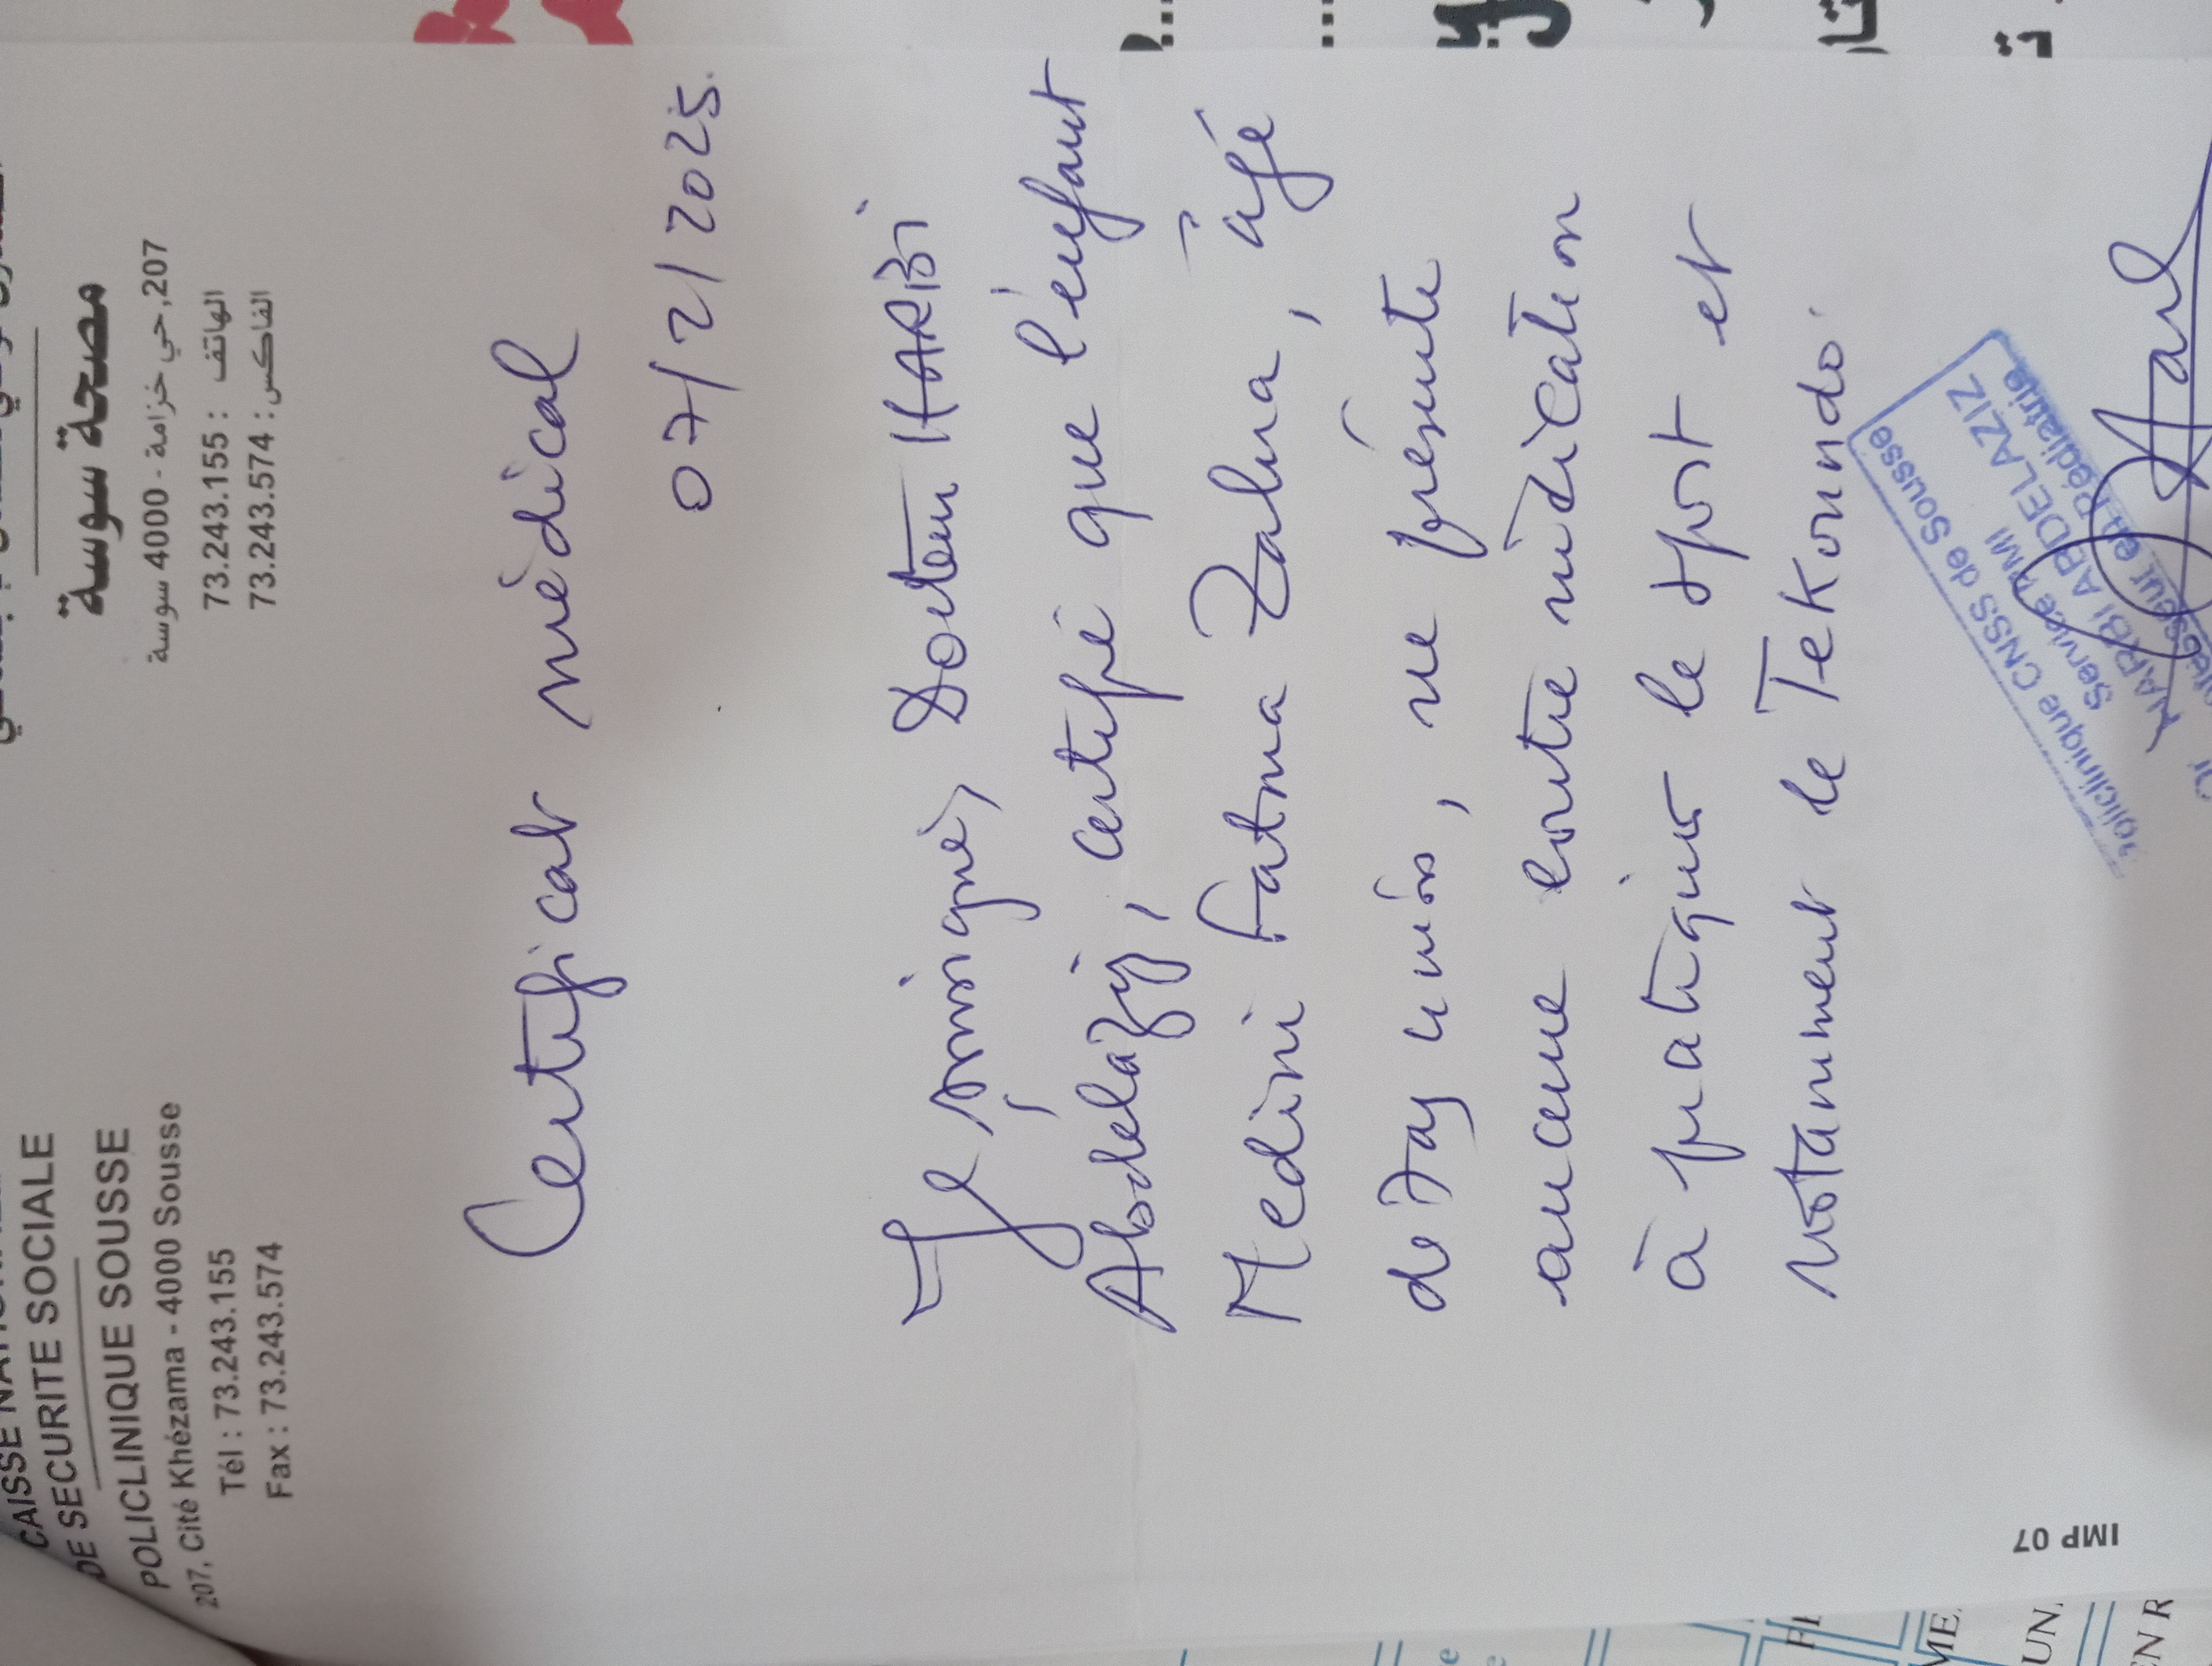 CAISSE
DE SECURITE SOCIALE
POLICLINIQUE SOUSSE
207, Cité Khézama - 4000 Sousse
Tél : 73.243.155
Fax : 73.243.574
مصحة سوسة
207, حي خزامة - 4000 سوسة
الهاتف : 73.243.155
الفاكس : 73.243.574
Certificat médical
07/2/2025.
Je, soussigné, Docteur HARBI
Abdelaziz, certifie que l'enfant
Medini Fatma Zahra, âgé
de, ne présente
aucune contre indication
à pratiquer le sport et
notamment le Tekondo.
Policlinique CNSS de Sousse
Service PMI
HARBI ABDELAZIZ
en Pédiatrie
IMP 07